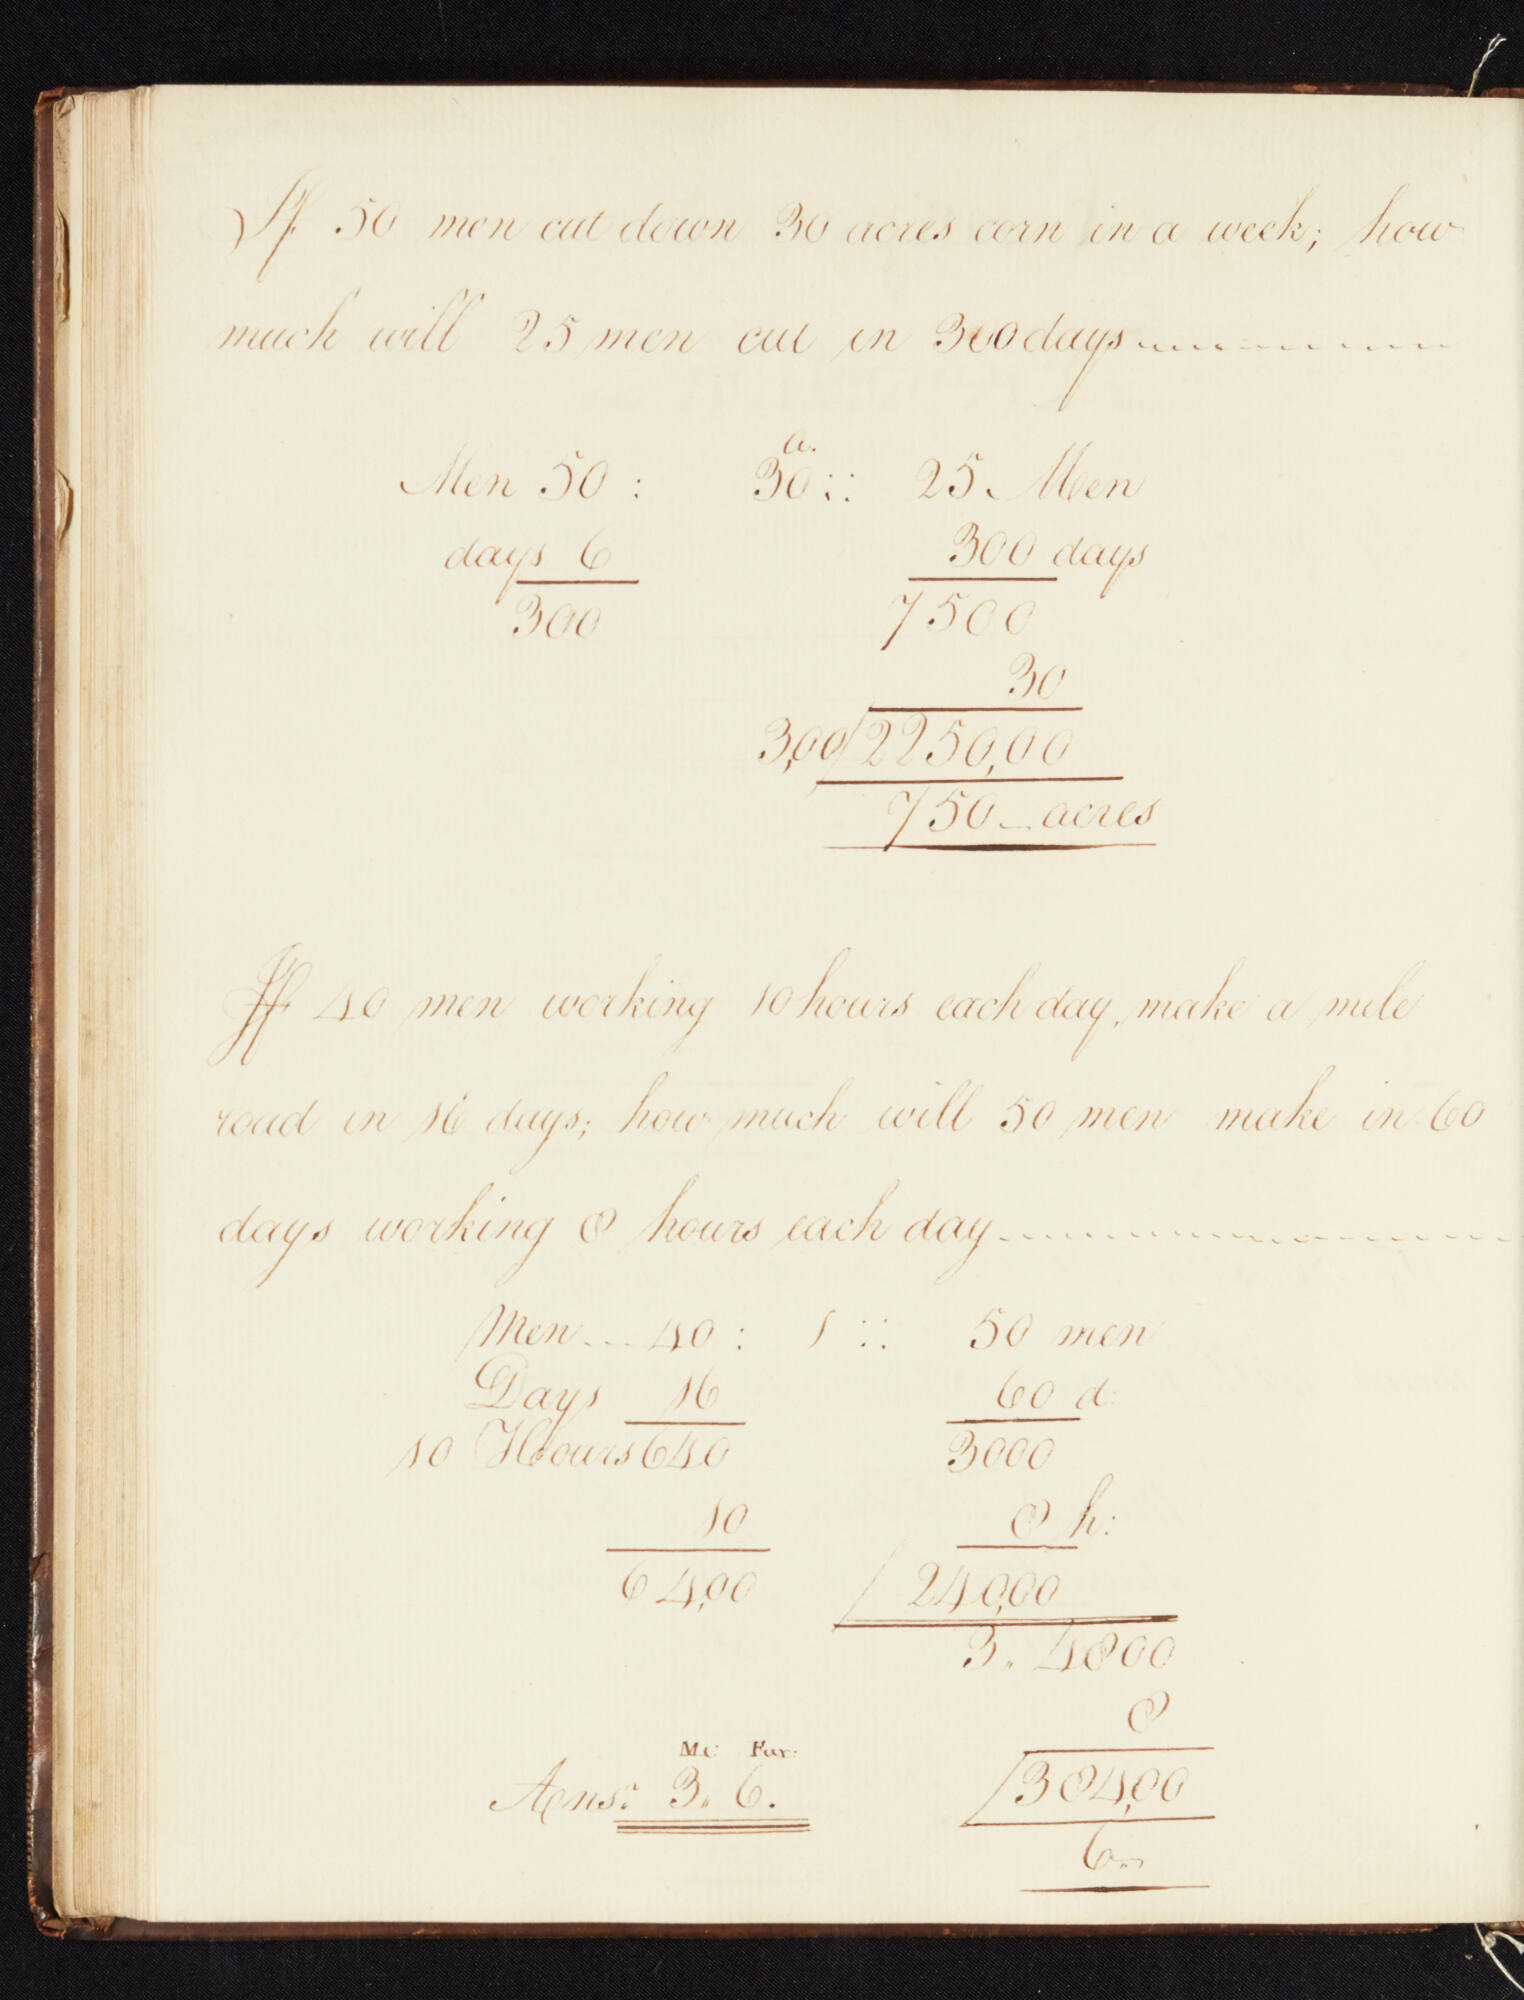 If 50 men cut down 30 acres corn in a week; how
much will 25 men cut in 300 days
a.
Men 50 : 30 :: 25 Men
days 6 300 days
300 7500
30
3,00/2250,00
750 - acres
If 40 men working 10 hours each day, make a mile
road in 16 days; how much will 50 men make in 60
days working 8 hours each day
Men 40 : 1 :: 50 men
Days 16 60 d:
10 Hours 640 3000
10 8 h:
64,00 240,00
3.. 4800
8
Mi: Fur:
Ans: 3.. 6. 384,00
6..